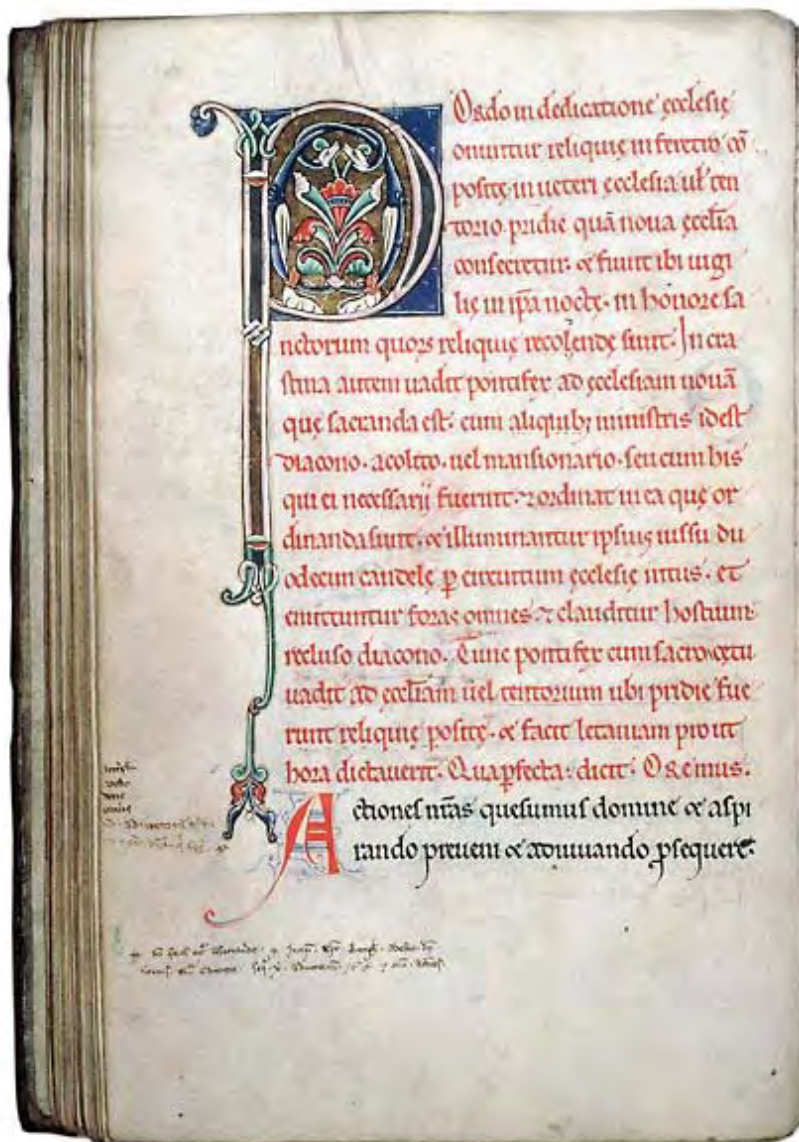 Ordo in dedicatione ęcclesię
ponuntur reliquię in feretro cō
positę in ueteri ecclesia uł ten
torio pridie quā noua ęccłia
consecretur. & fiunt ibi uigi
lię in ip̄a nocte. in honore sa
nctorum quorꝫ reliquię recolendę sunt. In cra
stina autem uadit pontifex ad ęcclesiam nouā
quę sacranda est. cum aliquibꝫ ministris idest
diacono. acolito. uel mansionario. seu cum his
qui ei necessarii fuerint. ⁊ ordinat in ea quę or
dinanda sunt. & illuminantur ipsius iussu du
odecim candelę ꝑ circuitum ęcclesię intus. et
emittuntur foras omnes. ⁊ clauditur hostium.
recluso diacono. Tunc pontifex cum sacro cętu
uadit ad ęccłiam uel tentorium ubi pridie fue
runt reliquię positę. & facit letaniam pro ut
hora dictauerit. Qua ꝑfecta. dicit. Oremus.
Actiones nr̄as quesumus domine & aspi
rando preueni & adiuuando ꝑsequere.